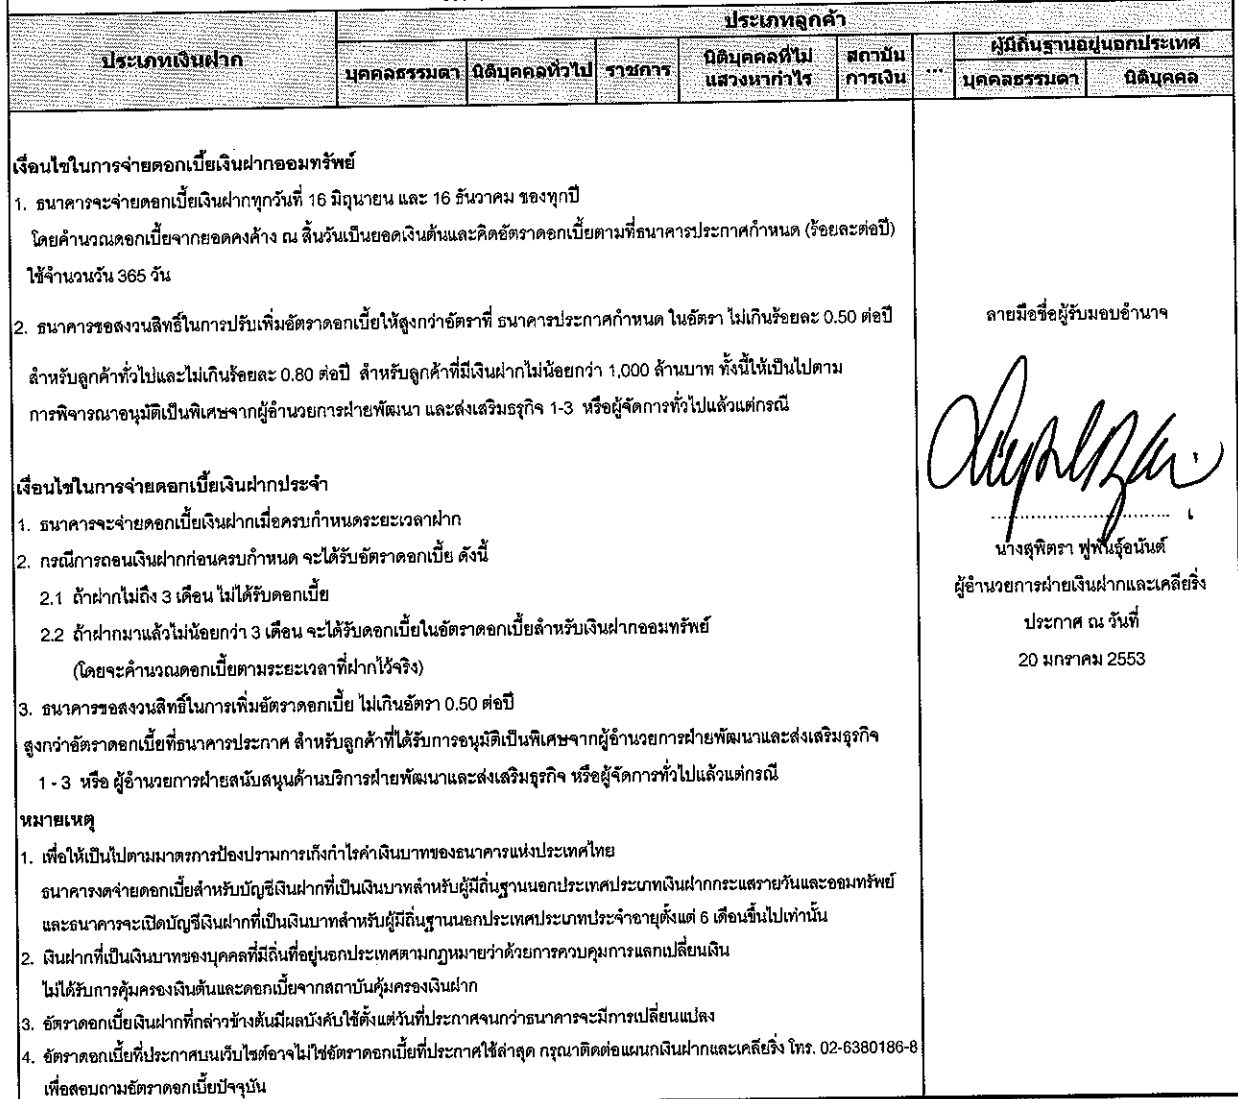 ประเภทลูกค้า
ประเภทเงินฝาก
บุคคลธรรมดา
นิติบุคคลทั่วไป
ราชการ
นิติบุคคลที่ไม่
แสวงหากำไร
สถาบัน
การเงิน
...
ผู้มีถิ่นฐานอยู่นอกประเทศ
บุคคลธรรมดา
นิติบุคคล
เงื่อนไขในการจ่ายดอกเบี้ยเงินฝากออมทรัพย์
1. ธนาคารจะจ่ายดอกเบี้ยเงินฝากทุกวันที่ 16 มิถุนายน และ 16 ธันวาคม ของทุกปี
โดยคำนวณดอกเบี้ยจากยอดคงค้าง ณ สิ้นวันเป็นยอดเงินต้นและคิดอัตราดอกเบี้ยตามที่ธนาคารประกาศกำหนด (ร้อยละต่อปี)
ใช้จำนวนวัน 365 วัน
2. ธนาคารขอสงวนสิทธิ์ในการปรับเพิ่มอัตราดอกเบี้ยให้สูงกว่าอัตราที่ ธนาคารประกาศกำหนด ในอัตรา ไม่เกินร้อยละ 0.50 ต่อปี
สำหรับลูกค้าทั่วไปและไม่เกินร้อยละ 0.80 ต่อปี สำหรับลูกค้าที่มีเงินฝากไม่น้อยกว่า 1,000 ล้านบาท ทั้งนี้ให้เป็นไปตาม
การพิจารณาอนุมัติเป็นพิเศษจากผู้อำนวยการฝ่ายพัฒนา และส่งเสริมธุรกิจ 1-3 หรือผู้จัดการทั่วไปแล้วแต่กรณี
เงื่อนไขในการจ่ายดอกเบี้ยเงินฝากประจำ
1. ธนาคารจะจ่ายดอกเบี้ยเงินฝากเมื่อครบกำหนดระยะเวลาฝาก
2. กรณีการถอนเงินฝากก่อนครบกำหนด จะได้รับอัตราดอกเบี้ย ดังนี้
2.1 ถ้าฝากไม่ถึง 3 เดือน ไม่ได้รับดอกเบี้ย
2.2 ถ้าฝากมาแล้วไม่น้อยกว่า 3 เดือน จะได้รับดอกเบี้ยในอัตราดอกเบี้ยสำหรับเงินฝากออมทรัพย์
(โดยจะคำนวณดอกเบี้ยตามระยะเวลาที่ฝากไว้จริง)
3. ธนาคารขอสงวนสิทธิ์ในการเพิ่มอัตราดอกเบี้ย ไม่เกินอัตรา 0.50 ต่อปี
สูงกว่าอัตราดอกเบี้ยที่ธนาคารประกาศ สำหรับลูกค้าที่ได้รับการอนุมัติเป็นพิเศษจากผู้อำนวยการฝ่ายพัฒนาและส่งเสริมธุรกิจ
1 - 3 หรือ ผู้อำนวยการฝ่ายสนับสนุนด้านบริการฝ่ายพัฒนาและส่งเสริมธุรกิจ หรือผู้จัดการทั่วไปแล้วแต่กรณี
หมายเหตุ
1. เพื่อให้เป็นไปตามมาตรการป้องปรามการเก็งกำไรค่าเงินบาทของธนาคารแห่งประเทศไทย
ธนาคารงดจ่ายดอกเบี้ยสำหรับบัญชีเงินฝากที่เป็นเงินบาทสำหรับผู้มีถิ่นฐานนอกประเทศประเภทเงินฝากกระแสรายวันและออมทรัพย์
และธนาคารจะเปิดบัญชีเงินฝากที่เป็นเงินบาทสำหรับผู้มีถิ่นฐานนอกประเทศประเภทประจำอายุตั้งแต่ 6 เดือนขึ้นไปเท่านั้น
2. เงินฝากที่เป็นเงินบาทของบุคคลที่มีถิ่นที่อยู่นอกประเทศตามกฎหมายว่าด้วยการควบคุมการแลกเปลี่ยนเงิน
ไม่ได้รับการคุ้มครองเงินต้นและดอกเบี้ยจากสถาบันคุ้มครองเงินฝาก
3. อัตราดอกเบี้ยเงินฝากที่กล่าวข้างต้นมีผลบังคับใช้ตั้งแต่วันที่ประกาศจนกว่าธนาคารจะมีการเปลี่ยนแปลง
4. อัตราดอกเบี้ยที่ประกาศบนเว็บไซต์อาจไม่ใช่อัตราดอกเบี้ยที่ประกาศใช้ล่าสุด กรุณาติดต่อแผนกเงินฝากและเคลียริ่ง โทร. 02-6380186-8
เพื่อสอบถามอัตราดอกเบี้ยปัจจุบัน
ลายมือชื่อผู้รับมอบอำนาจ
นางสุพิตรา ฟูพันธุ์อนันต์
ผู้อำนวยการฝ่ายเงินฝากและเคลียริ่ง
ประกาศ ณ วันที่
20 มกราคม 2553